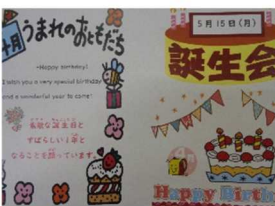 十月 うまれのおともだち
~Happy birthday!
I wish you a very special birthday
and a wonderful year to come!
素敵な誕生日と
すばらしい1年と
なることを願っています。
5月15日(月)
誕生会
Happy Birth